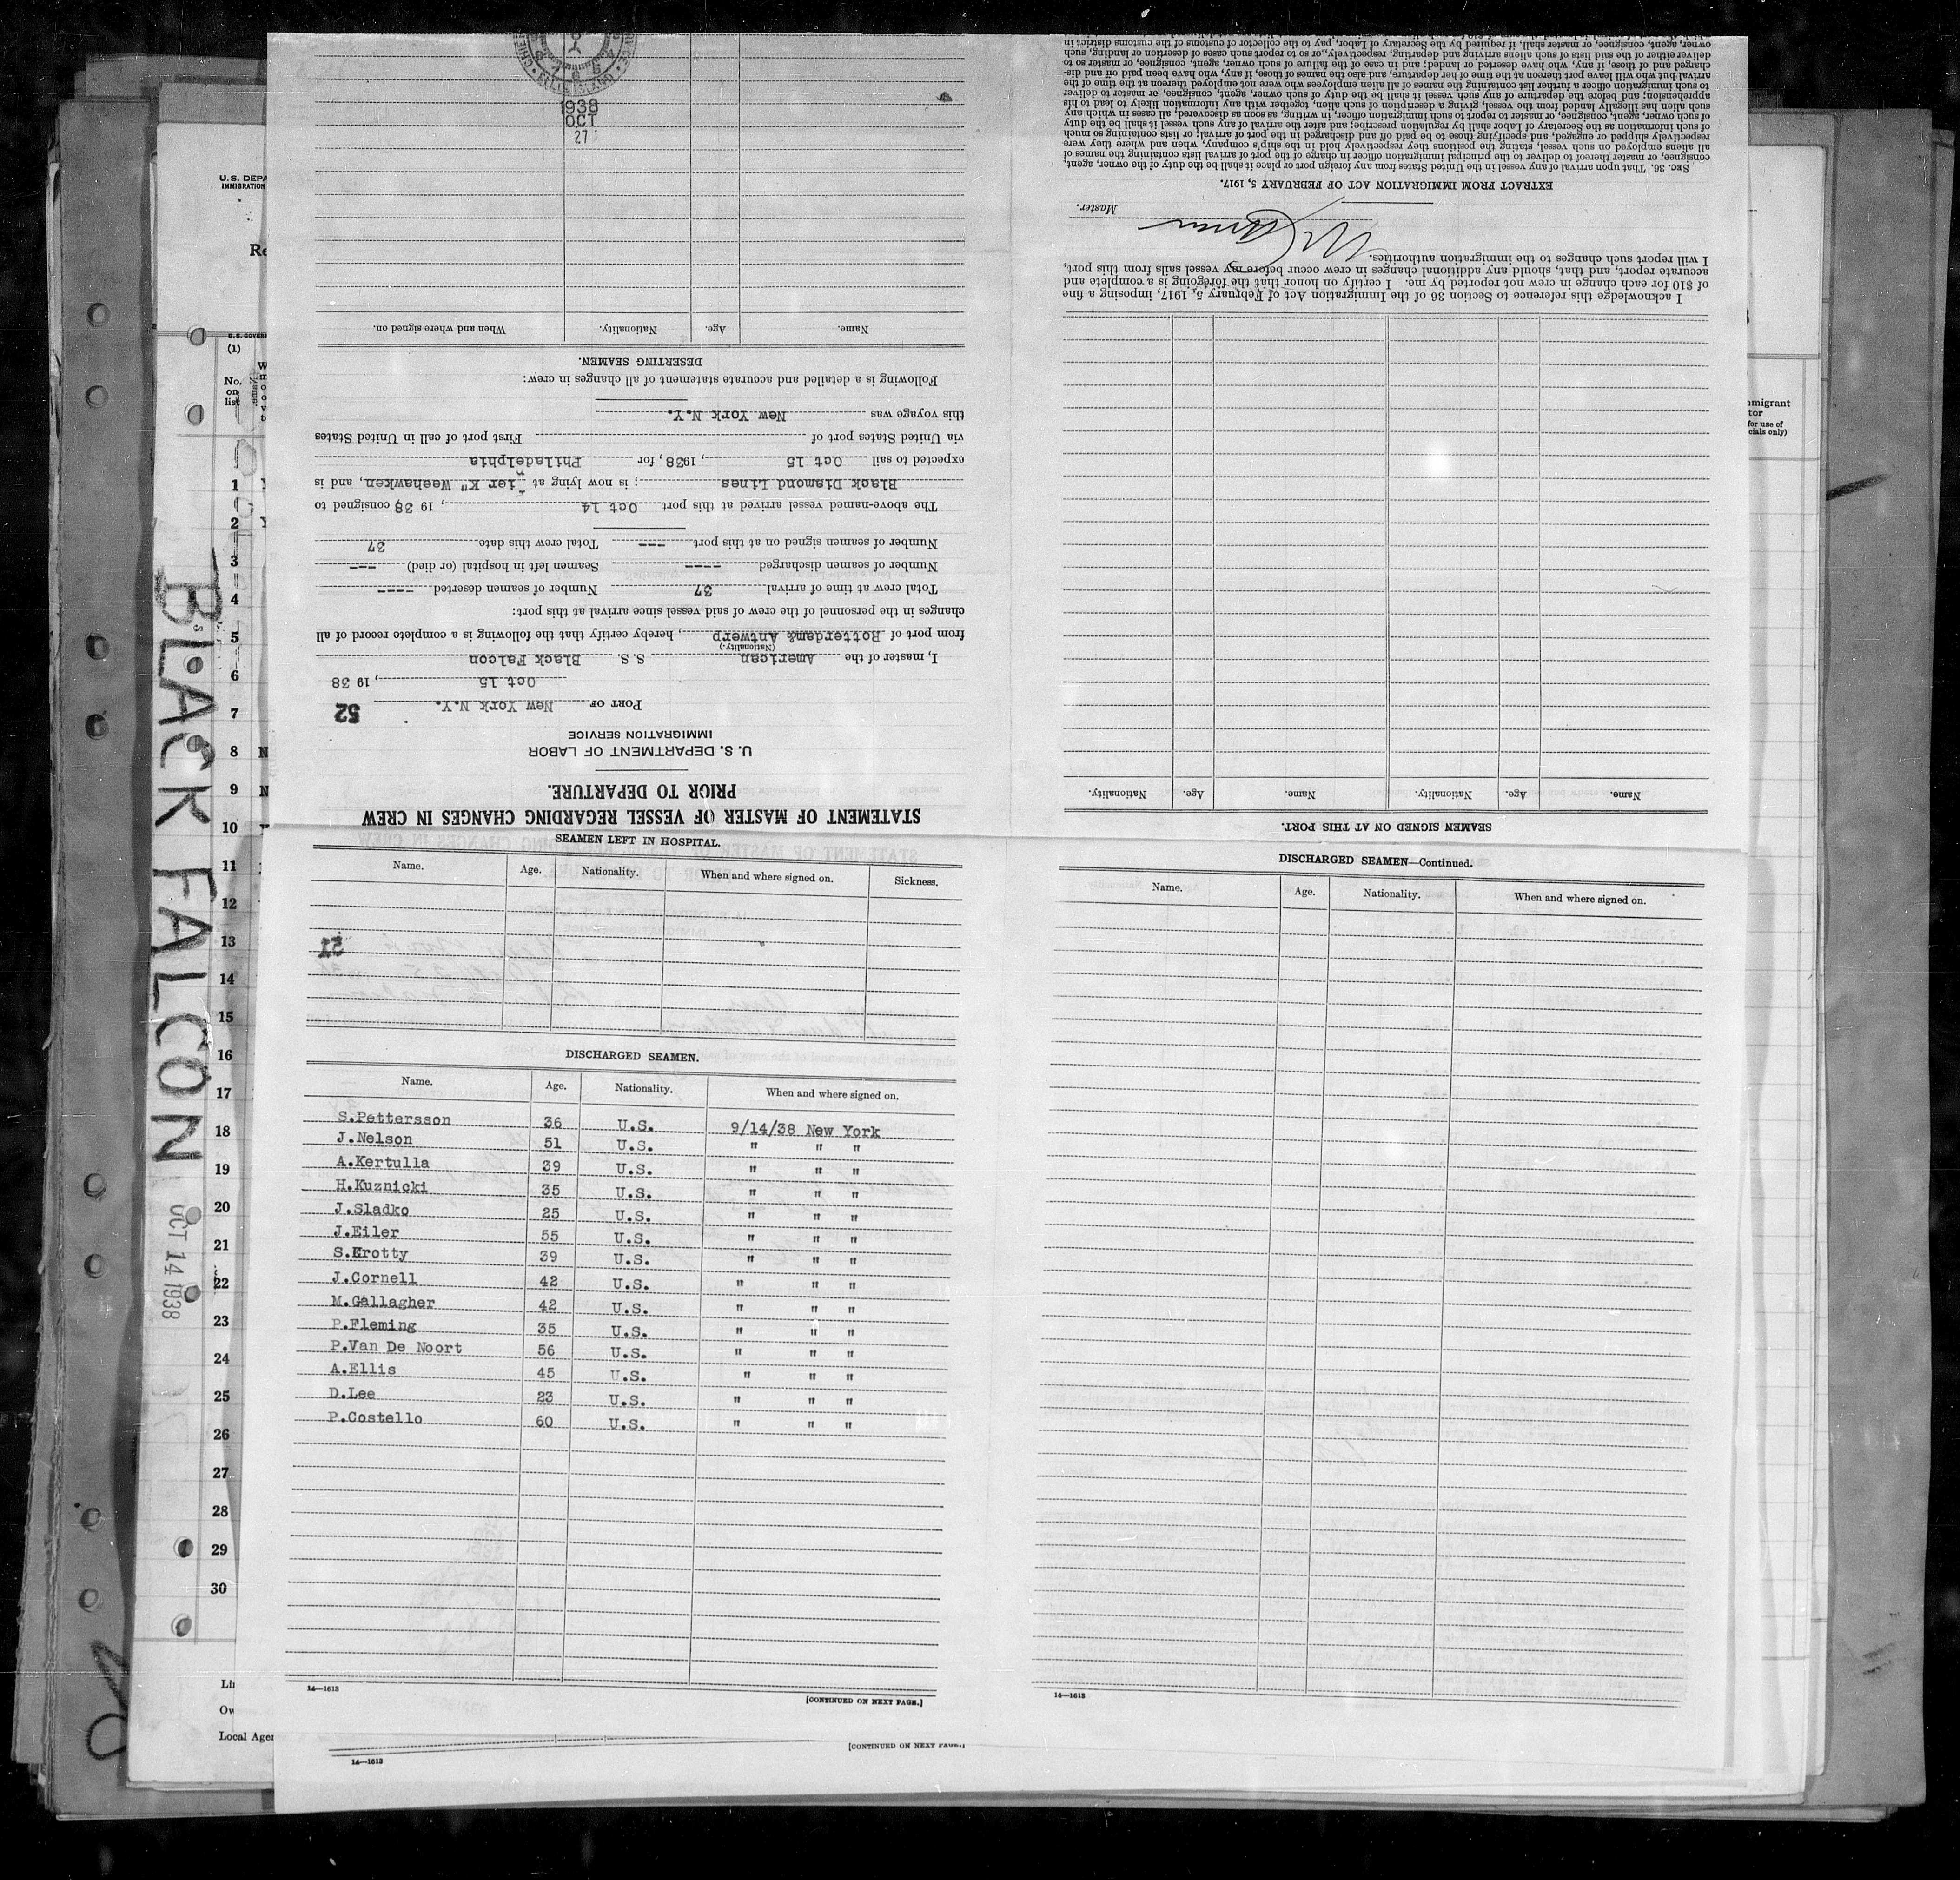 U.S. DEPA
IMMIGRATION
Re
U.S. GOVER
(1)
No.
on
list
1
2
3
4
5
6
7
8
9
10
11
12
13
14
15
16
17
18
19
20
21
22
23
24
25
26
27
28
29
30
BLACK FALCON
OCT 14 1938
Local Agen
mmigrant
tor
for use of
cials only)
STATEMENT OF MASTER OF VESSEL REGARDING CHANGES IN CREW
PRIOR TO DEPARTURE.
U. S. DEPARTMENT OF LABOR
IMMIGRATION SERVICE
52
PORT OF New York N.Y.
Oct 15, 19 38
I, master of the American S. S. Black Falcon
(Nationality.)
from port of Rotterdam& Antwerp, hereby certify that the following is a complete record of all
changes in the personnel of the crew of said vessel since arrival at this port:
Total crew at time of arrival 37 Number of seamen deserted ----
Number of seamen discharged ---- Seamen left in hospital (or died) ---
Number of seamen signed on at this port --- Total crew this date 37
The above-named vessel arrived at this port Oct 14, 19 38 consigned to
Black Diamond Lines; is now lying at ier K" Weehawken, and is
expected to sail Oct 15, 1938, for Philadelphia
via United States port of First port of call in United States
this voyage was New York N.Y.
Following is a detailed and accurate statement of all changes in crew:
DESERTING SEAMEN.
Name. Age. Nationality. When and where signed on.
1938
OCT
27
ELLIS ISLAND
SEAMEN SIGNED ON AT THIS PORT.
Name. Age. Nationality. Name. Age. Nationality.
I acknowledge this reference to Section 36 of the Immigration Act of February 5, 1917, imposing a fine
of $10 for each change in crew not reported by me. I certify on honor that the foregoing is a complete and
accurate report, and that, should any additional changes in crew occur before my vessel sails from this port,
I will report such changes to the immigration authorities.
Master.
EXTRACT FROM IMMIGRATION ACT OF FEBRUARY 5, 1917.
SEC. 36. That upon arrival of any vessel in the United States from any foreign port or place it shall be the duty of the owner, agent,
consignee, or master thereof to deliver to the principal immigration officer in charge of the port of arrival lists containing the names of
all aliens employed on such vessel, stating the positions they respectively hold in the ship's company, when and where they were
respectively shipped or engaged, and specifying those to be paid off and discharged in the port of arrival; or lists containing so much
of such information as the Secretary of Labor shall by regulation prescribe; and after the arrival of any such vessel it shall be the duty
of such owner, agent, consignee, or master to report to such immigration officer, in writing, as soon as discovered, all cases in which any
such alien has illegally landed from the vessel, giving a description of such alien, together with any information likely to lead to his
apprehension; and before the departure of any such vessel it shall be the duty of such owner, agent, consignee, or master to deliver
to such immigration officer a further list containing the names of all alien employees who were not employed thereon at the time of the
arrival but who will leave port thereon at the time of her departure, and also the names of those, if any, who have been paid off and dis-
charged and of those, if any, who have deserted or landed; and in case of the failure of such owner, agent, consignee, or master so to
deliver either of the said lists of such aliens arriving and departing, respectively, or so to report such cases of desertion or landing, such
owner, agent, consignee, or master shall, if required by the Secretary of Labor, pay to the collector of customs of the customs district in
SEAMEN LEFT IN HOSPITAL.
Name. Age. Nationality. When and where signed on. Sickness.
21
DISCHARGED SEAMEN.
Name. Age. Nationality. When and where signed on.
S.Pettersson 36 U.S. 9/14/38 New York
J.Nelson 51 U.S. " " "
A.Kertulla 39 U.S. " " "
H.Kuznicki 35 U.S. " " "
J.Sladko 25 U.S. " " "
J.Eiler 55 U.S. " " "
S.Krotty 39 U.S. " " "
J.Cornell 42 U.S. " " "
M.Gallagher 42 U.S. " " "
P.Fleming 35 U.S. " " "
P.Van De Noort 56 U.S. " " "
A.Ellis 45 U.S. " " "
D.Lee 23 U.S. " " "
P.Costello 60 U.S. " " "
14—1613
[CONTINUED ON NEXT PAGE.]
14—1613
[CONTINUED ON NEXT PAGE.]
DISCHARGED SEAMEN—Continued.
Name. Age. Nationality. When and where signed on.
14—1613